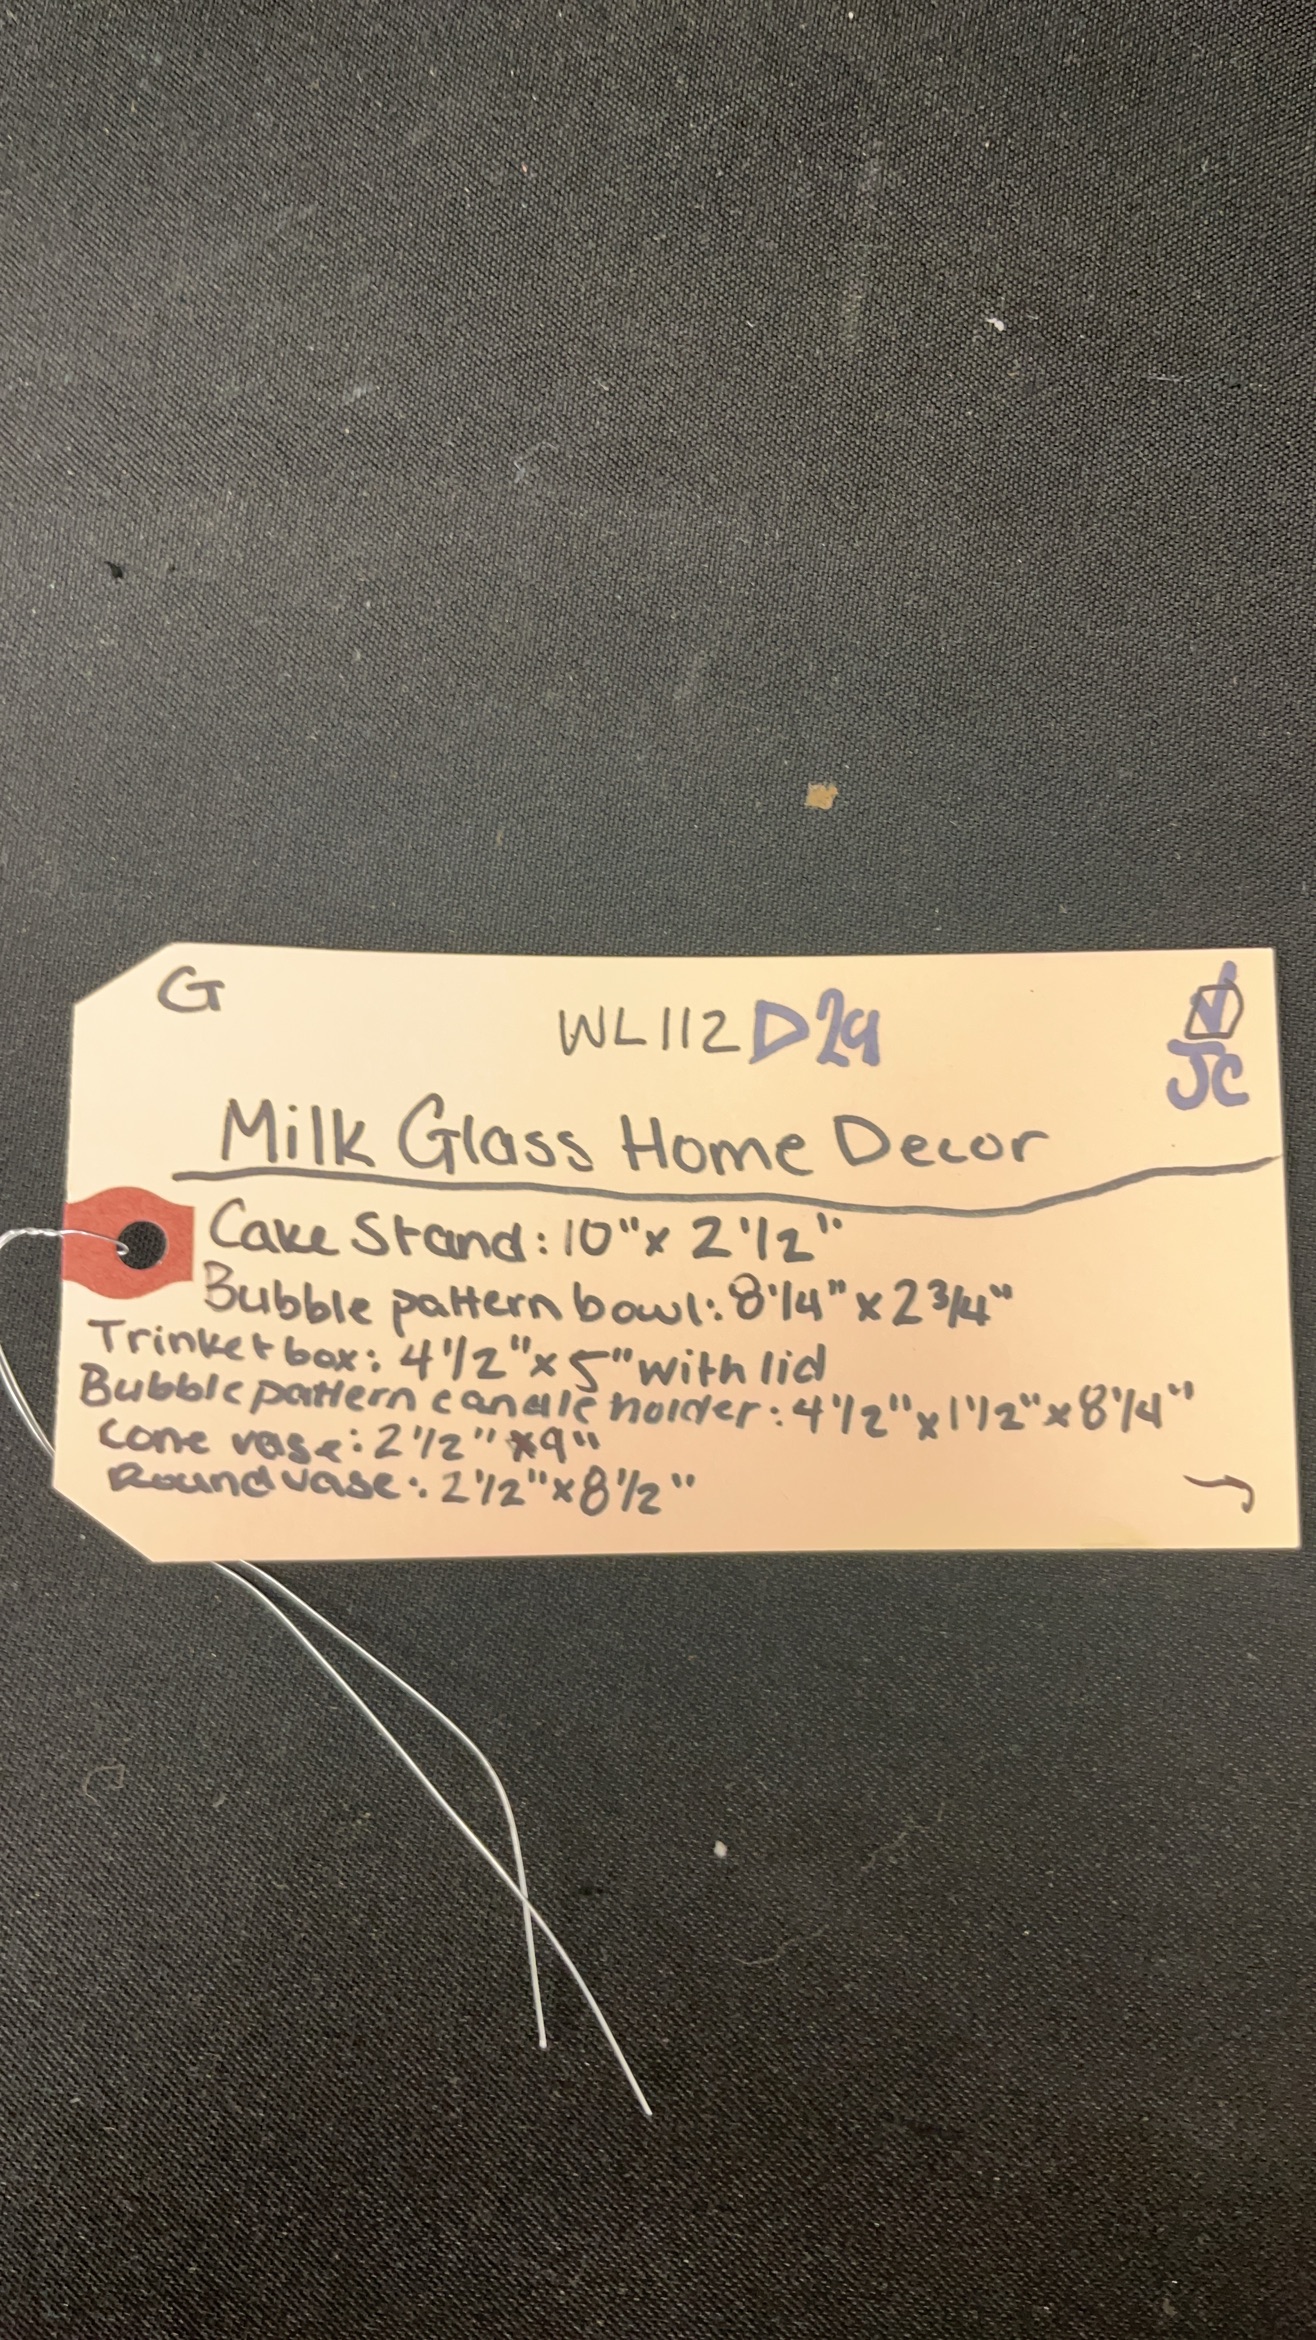 G
WL112 D29
JC
Milk Glass Home Decor
Cake Stand: 10" x 2 1/2"
Bubble pattern bowl: 8 1/4" x 2 3/4"
Trinket box: 4 1/2" x 5" with lid
Bubble pattern candle holder: 4 1/2" x 1 1/2" x 8 1/4"
Cone vase: 2 1/2" x 9"
Round vase: 2 1/2" x 8 1/2"